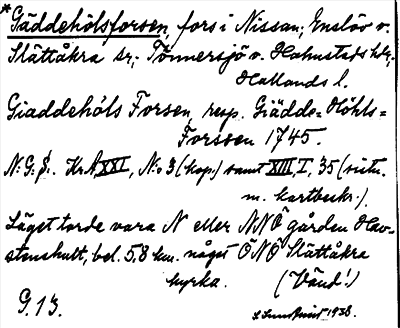 *Gäddehölsforsen, fors i Nissan; Enslöv o.
Slättåkra snr; Tönnersjö o. Halmstads hdr,
Hallands l.
Giaddehöls Forsen, resp. Giädde=Höhls=
Forssen 1745.
N.G.S. KrA XXI, N:o 3 (kop.) samt XIII, I, 35 (situ.
m. kartbeskr.).
Läget torde vara N eller NNÖ gården Hav-
stenshult, bel. 5,8 km. något ÖNÖ Slättåkra
kyrka. (Vänd!)
G. 13. 1938.